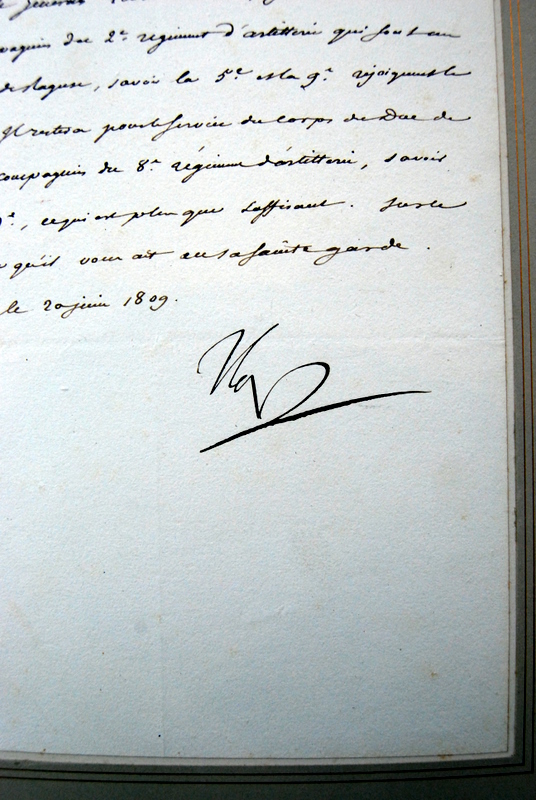 le général
compagnies du 2e régiment d'artillerie qui sont au
de Raguse, savoir la 5e et la 9e rejoignent le
Il restera pour le service du corps du Duc de
compagnies du 8e régiment d'artillerie, savoir
9e, ce qui est plus que suffisant. Sur ce
qu'il vous ait en sa sainte garde.
le 20 juin 1809.
Nap